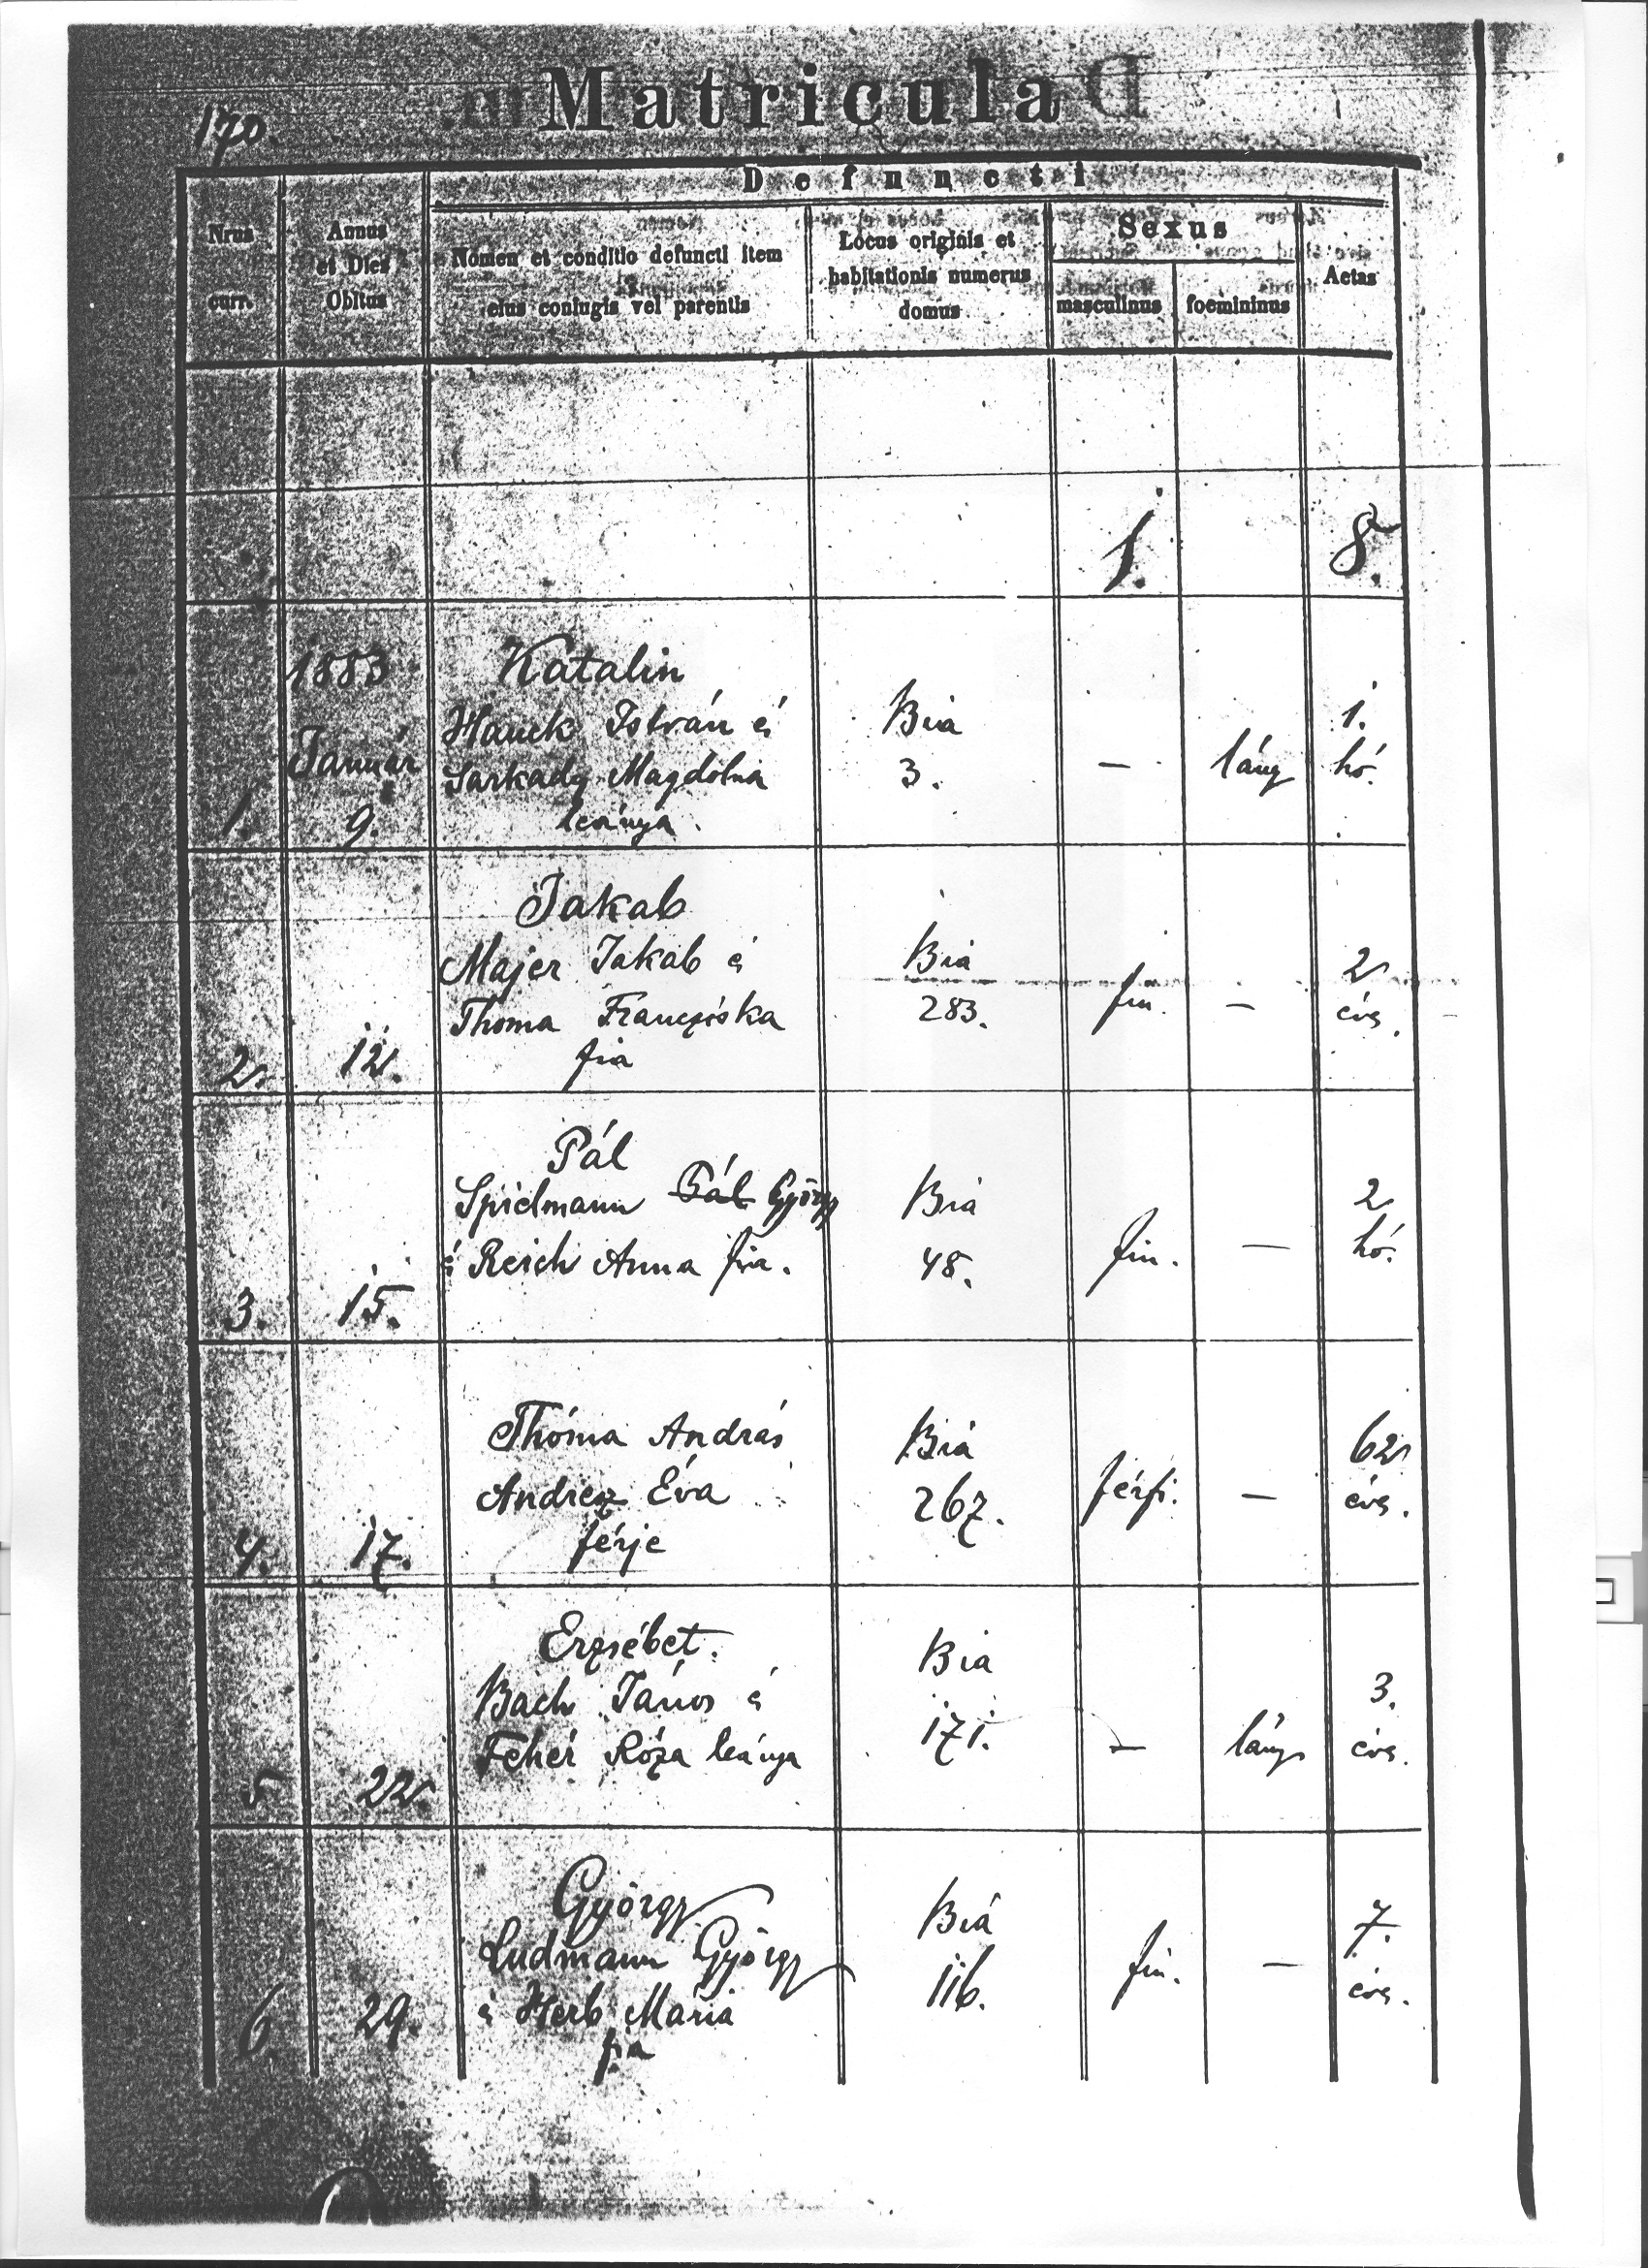 Matricula
170.
Defuncti
Nrus
curr.
Annus
et Dies
Obitus
Nomen et conditio defuncti item
eius coniugis vel parentis
Locus originis et
habitationis numerus
domus
Sexus
masculinus
foemininus
Aetas
1. 8.
1883 Katalin
Hauck István é Bia 1.
Január Sarkady Magdolna 3. — lány hó.
1. 9. leánya.
Jakab
Majer Jakab é Bia 2
Thoma Francziska 283. fiu. — éves.
2. 12. fia
Pál
Spielmann Pál György Bia 2
é Reich Anna fia. 48. fiu. — hó.
3. 15.
Thóma András Bia 62
Andrez Éva 267. férfi. — éves.
4. 17. férje
Erzsébet. Bia
Bach János é 171. 3.
Fehér Róza leánya — lány éves.
5 22
György Bia 7.
Ludmann György fiu. — éves.
é Herb Mária 116.
6. 29. fia